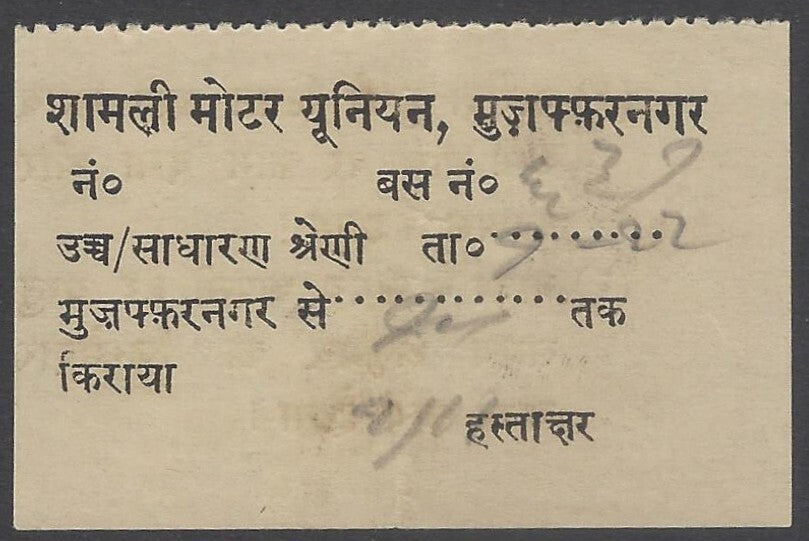 शामली मोटर यूनियन, मुज़फ्फ़रनगर
नं० बस नं०
उच्च/साधारण श्रेणी ता०..........
मुज़फ्फ़रनगर से.............तक
किराया
हस्ताक्षर